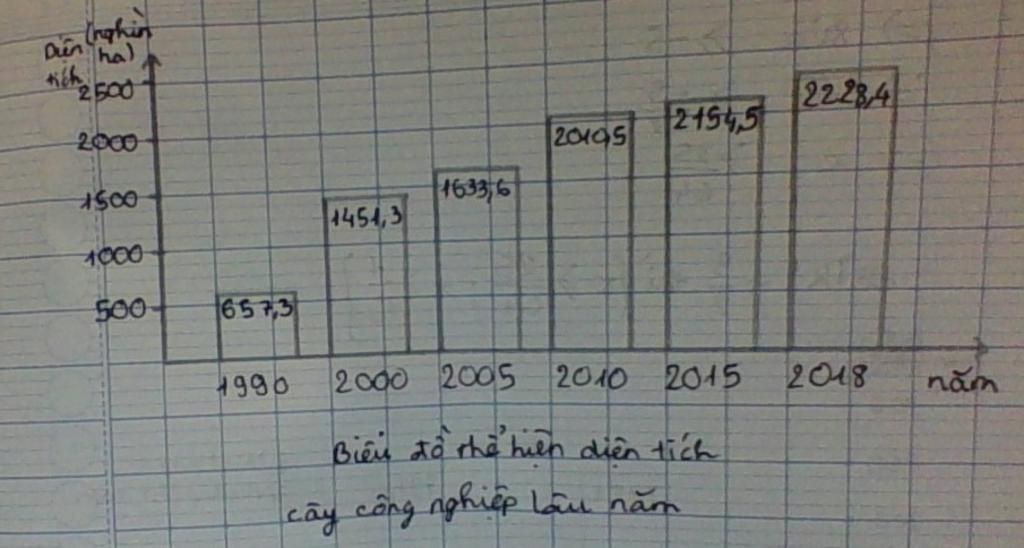 Diện (nghìn
tích ha)
2500
2000
1500
1000
500
657,3
1451,3
1633,6
2010,5
2154,5
2228,4
1990 2000 2005 2010 2015 2018 năm
Biểu đồ thể hiện diện tích
cây công nghiệp lâu năm